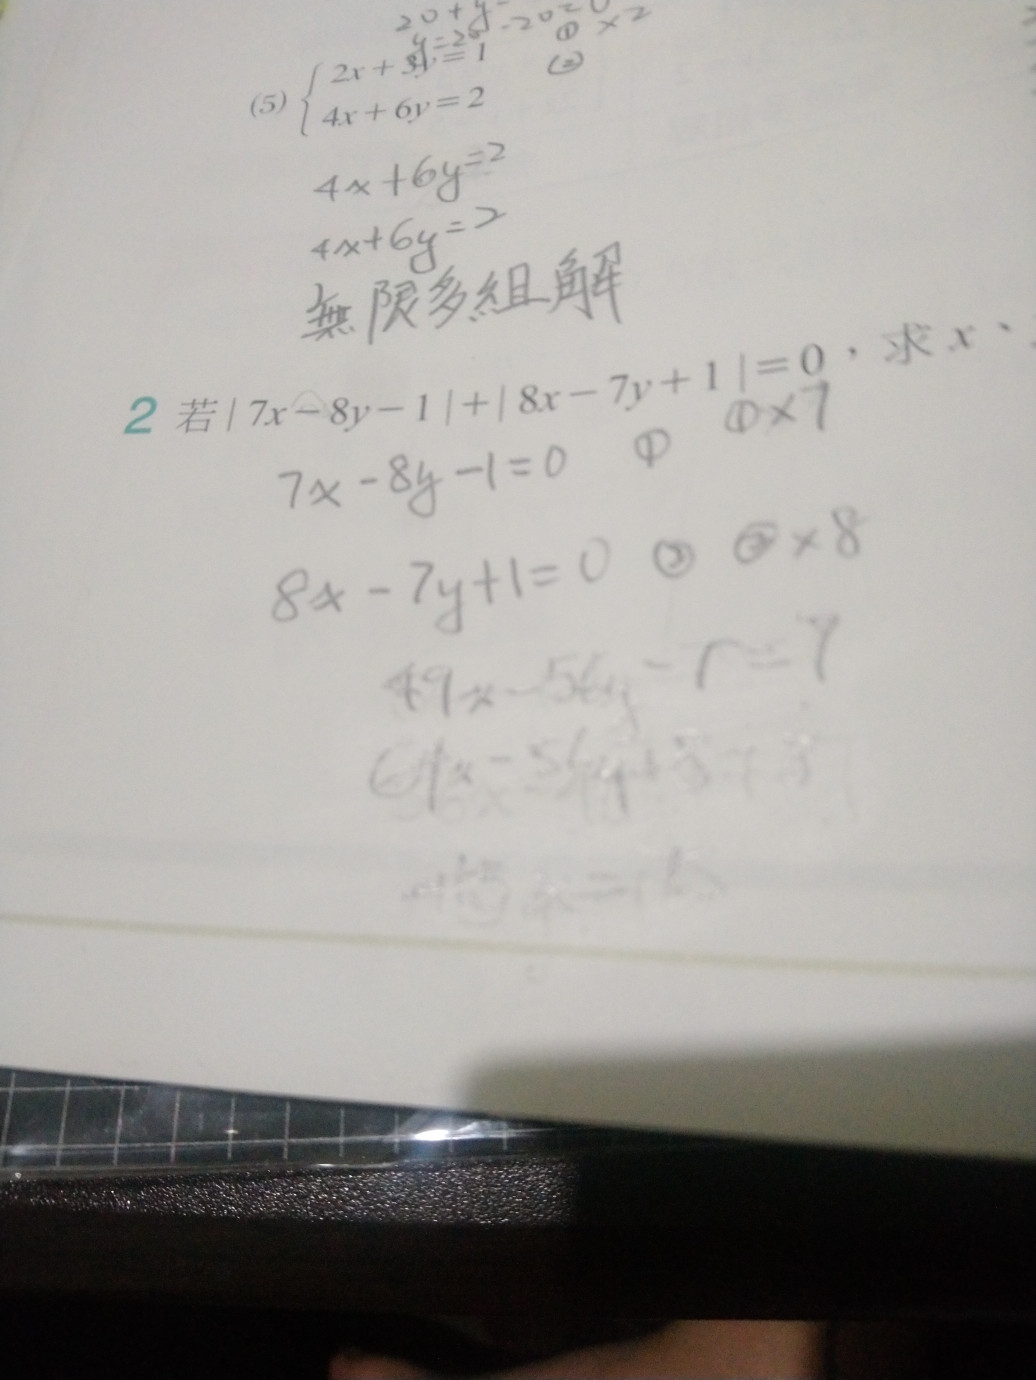 20+y
y=20 -20=0
(5) { 2x+3y=1 ① ×2
4x+6y=2 ②
4x+6y=2
4x+6y=2
無限多組解
2 若|7x-8y-1|+|8x-7y+1|=0，求x、
7x-8y-1=0 ① ①×7
8x-7y+1=0 ② ②×8
49x-56y-7=7
64x-56y+8